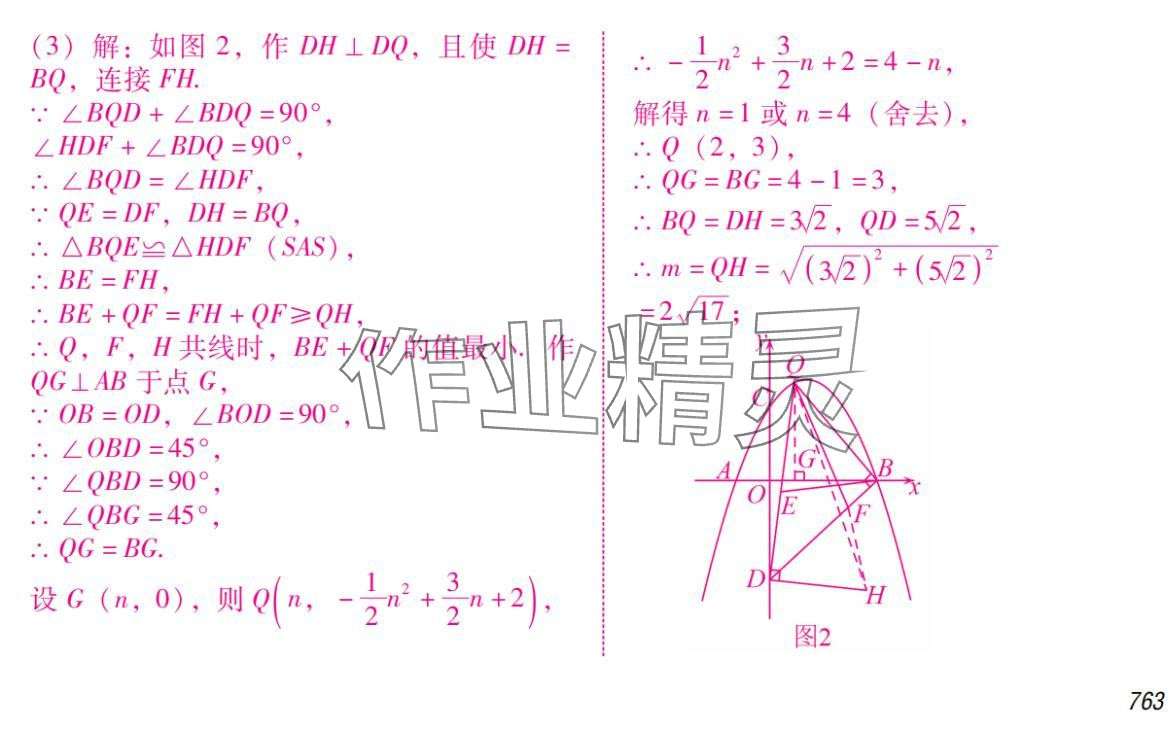 (3) 解：如图 2，作 DH⊥DQ，且使 DH =
BQ，连接 FH.
∵ ∠BQD + ∠BDQ = 90°，
∠HDF + ∠BDQ = 90°，
∴ ∠BQD = ∠HDF，
∵ QE = DF，DH = BQ，
∴ △BQE≌△HDF（SAS），
∴ BE = FH，
∴ BE + QF = FH + QF ≥ QH，
∴ Q，F，H 共线时，BE + QF 的值最小. 作
QG⊥AB 于点 G，
∵ OB = OD，∠BOD = 90°，
∴ ∠OBD = 45°，
∵ ∠QBD = 90°，
∴ ∠QBG = 45°，
∴ QG = BG.
设 G（n，0），则 Q(n，-1/2n² + 3/2n + 2)，
∴ -1/2n² + 3/2n + 2 = 4 - n，
解得 n = 1 或 n = 4（舍去），
∴ Q（2，3），
∴ QG = BG = 4 - 1 = 3，
∴ BQ = DH = 3√2，QD = 5√2，
∴ m = QH = √((3√2)² + (5√2)²)
= 2√17；
y
Q
C
G
A
B
O
E
x
F
D
H
图2
作业精灵
763